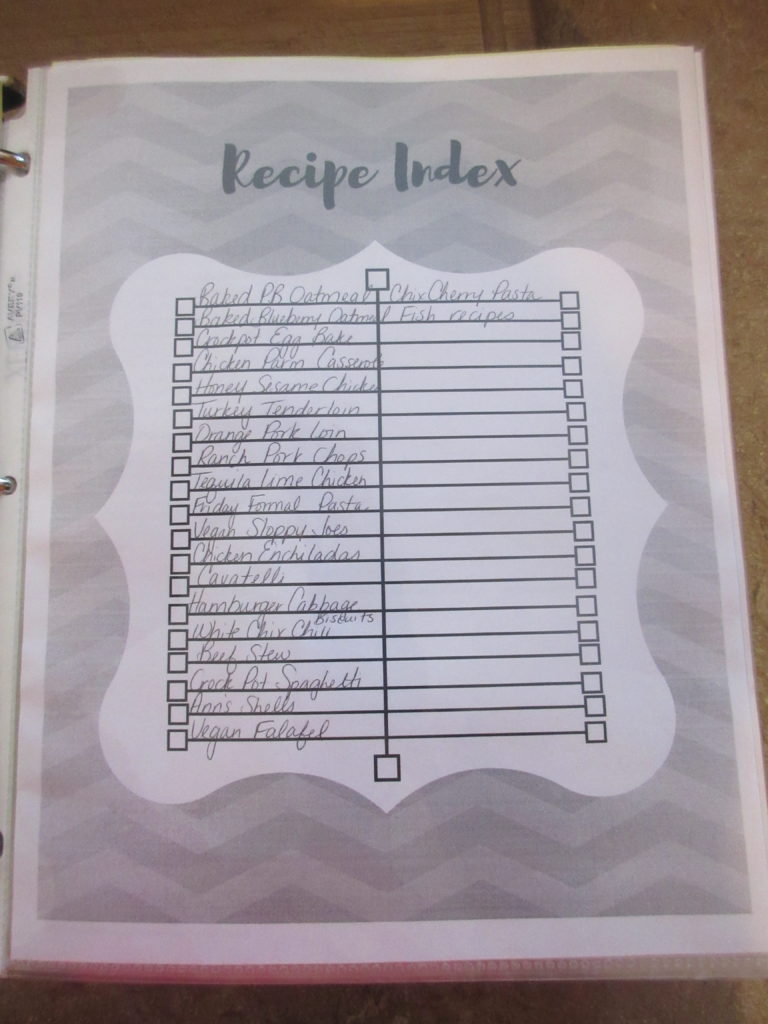 Recipe Index
Baked P.B Oatmeal Chix Cherry Pasta
Baked Blueberry Oatmeal Fish recipes
Crockpot Egg Bake
Chicken Parm Casserole
Honey Sesame Chicken
Turkey Tenderloin
Orange Pork Loin
Ranch Pork Chops
Tequila Lime Chicken
Friday Formal Pasta
Vegan Sloppy Joes
Chicken Enchiladas
Cavatelli
Hamburger Cabbage
Biscuits
White Chix Chili
Beef Stew
Crock Pot Spaghetti
Ann's Shells
Vegan Falafel